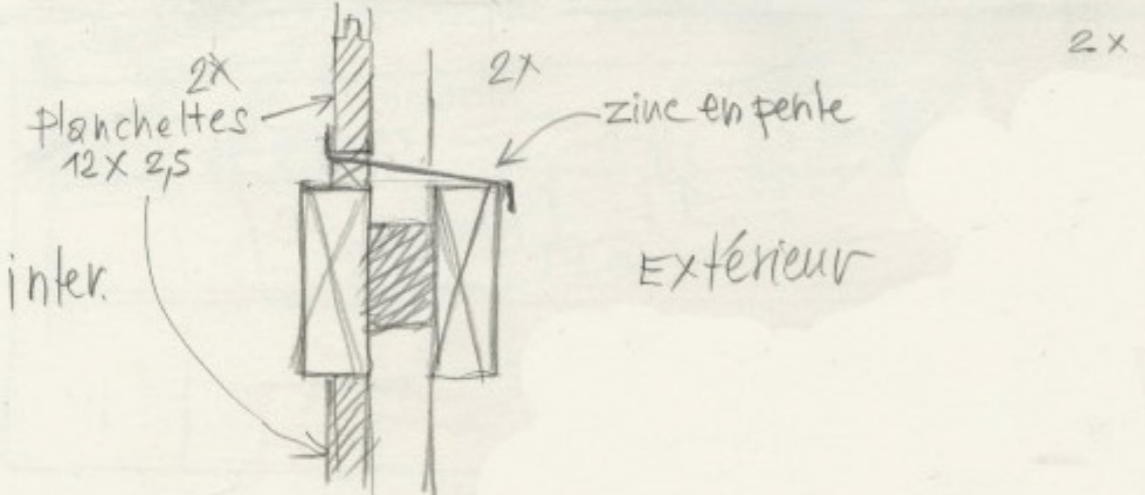 2x
2x
2x
Planchettes
12 x 2,5
zinc en pente
inter.
Extérieur